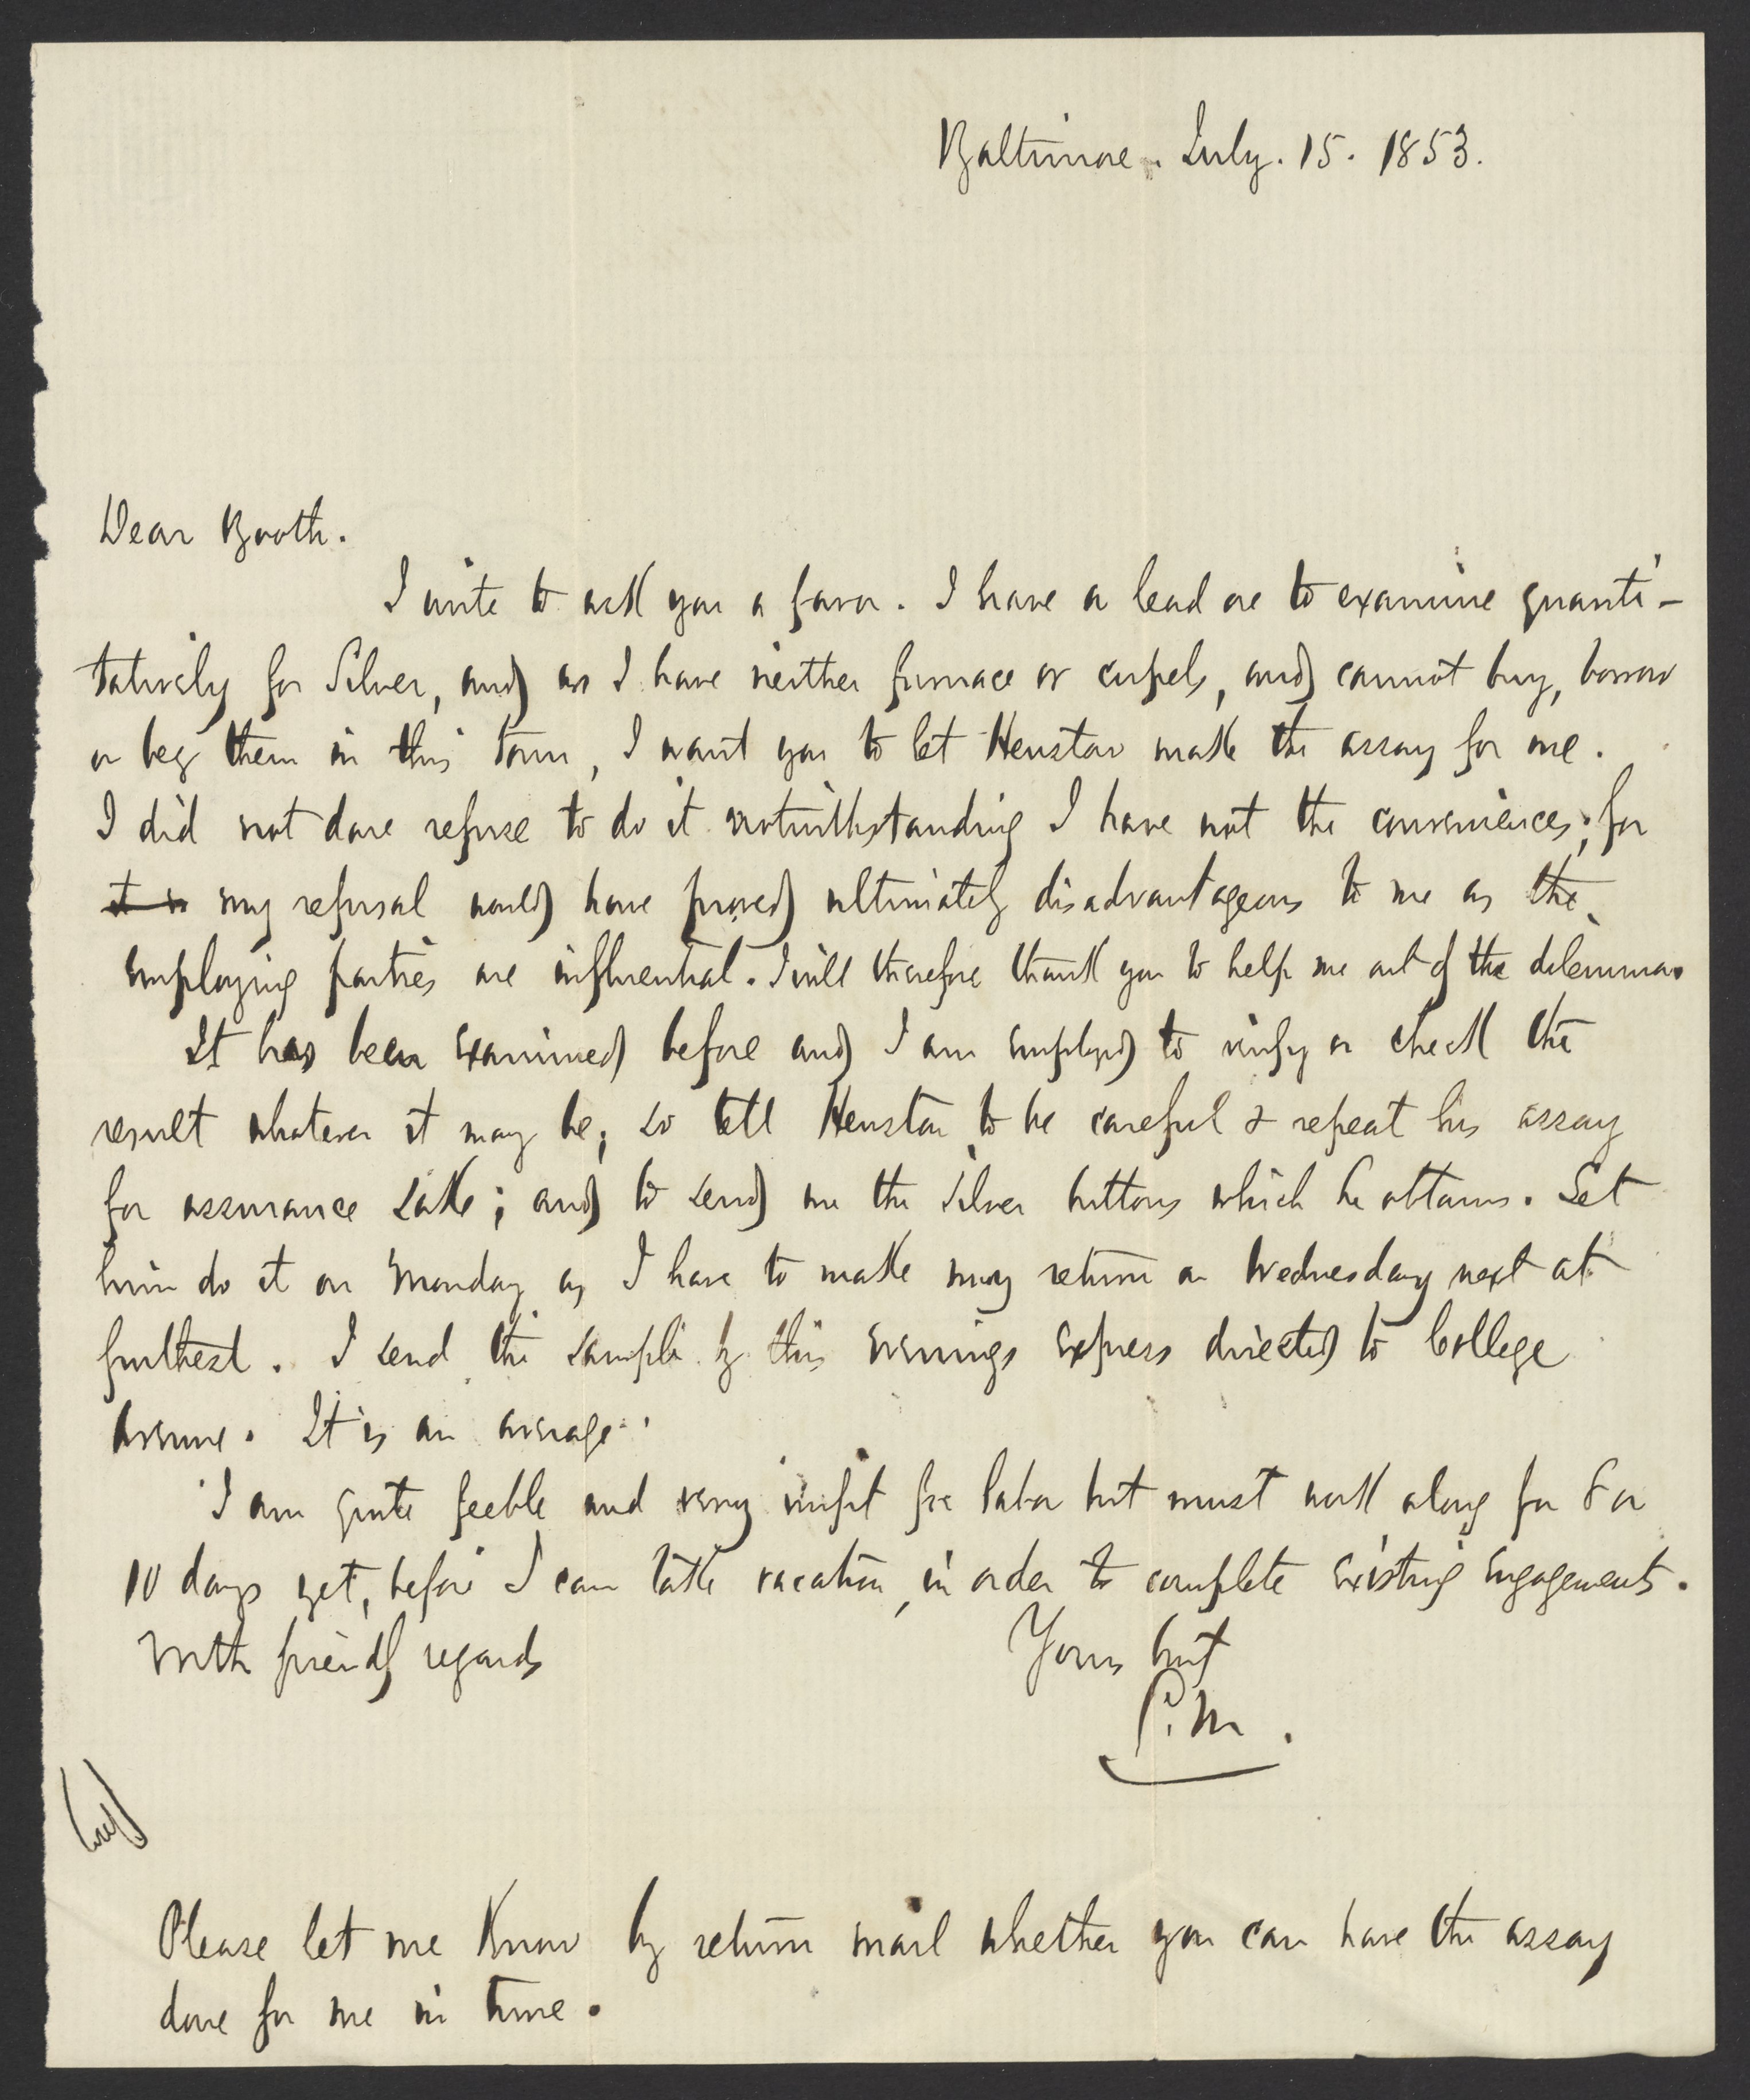 Baltimore. July. 15. 1853.
Dear Booth.
I write to ask you a favor. I have a lead ore to examine quanti-
tatively for Silver, and as I have neither furnace or cupels, and cannot buy, borrow
or beg them in this town, I want you to let Heuston make the assay for me.
I did not dare refuse to do it notwithstanding I have not the conveniences; for
it is my refusal would have proved ultimately disadvantageous to me as the
employing parties are influential. I will therefore thank you to help me out of the dilemma
It has been examined before and I am employed to verify or check the
result whatever it may be; so tell Heuston to be careful & repeat his assay
for assurance sake; and to send me the silver buttons which he obtains. Let
him do it on Monday as I have to make my return on Wednesday next at
furthest. I send the sample by this evenings express directed to College
Avenue. It is an average.
I am quite feeble and very unfit for labor but must work along for 8 or
10 days yet, before I can take vacation, in order to complete existing engagements.
With friendly regards
Yours but
C. M.
Please let me know by return mail whether you can have the assay
done for me in time.